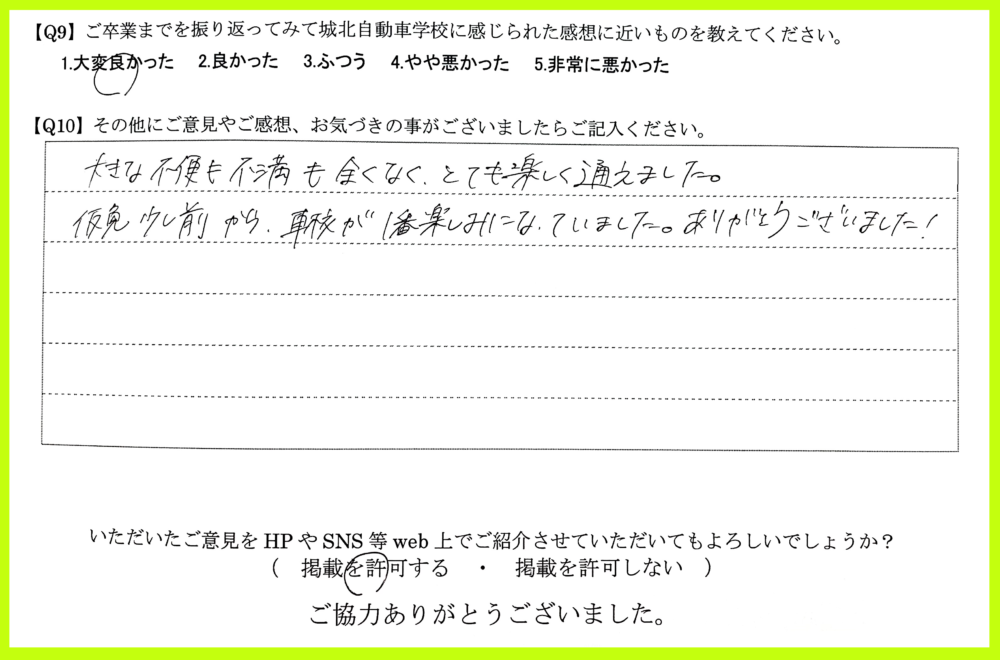 【Q9】ご卒業までを振り返ってみて城北自動車学校に感じられた感想に近いものを教えてください。
1.大変良かった 2.良かった 3.ふつう 4.やや悪かった 5.非常に悪かった
【Q10】その他にご意見やご感想、お気づきの事がございましたらご記入ください。
大きな不便も不満も全くなく、とても楽しく通えました。
仮免少し前から、車校が1番楽しみになっていました。ありがとうございました！
いただいたご意見を HP や SNS 等 web 上でご紹介させていただいてもよろしいでしょうか？
（ 掲載を許可する ・ 掲載を許可しない ）
ご協力ありがとうございました。